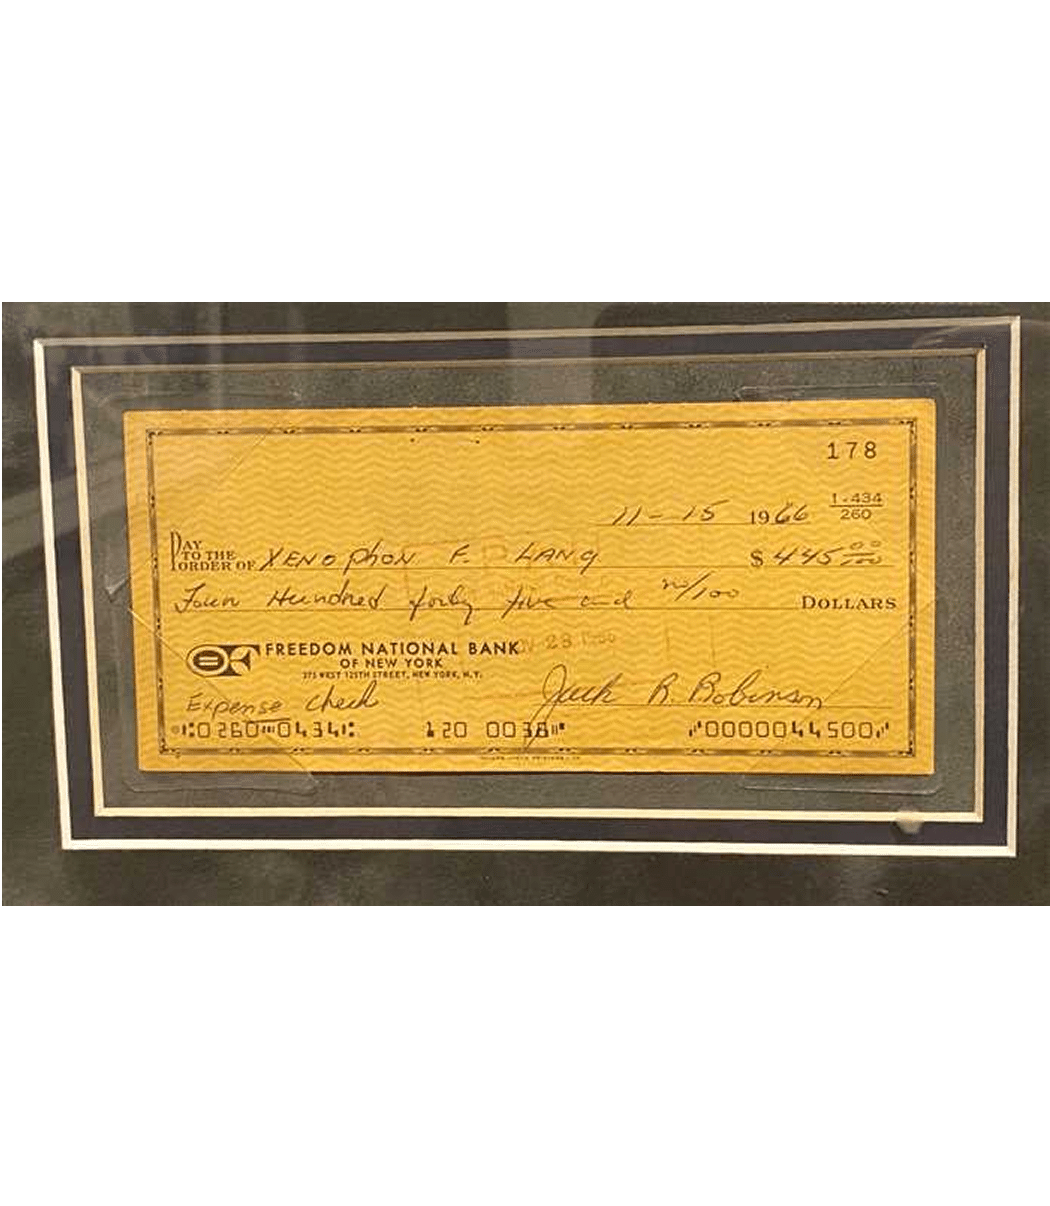 178
11-15 1966 1-434
260
PAY TO THE ORDER OF XENOPHON F. LANG $ 445 00/100
Four Hundred forty five and no/100 DOLLARS
FREEDOM NATIONAL BANK
OF NEW YORK
275 WEST 125TH STREET, NEW YORK, N.Y.
NOV 28 1966
Expense check Jack R. Robinson
⑆0260⑉0434⑆ 120 0038⑈ ⑇0000044500⑇